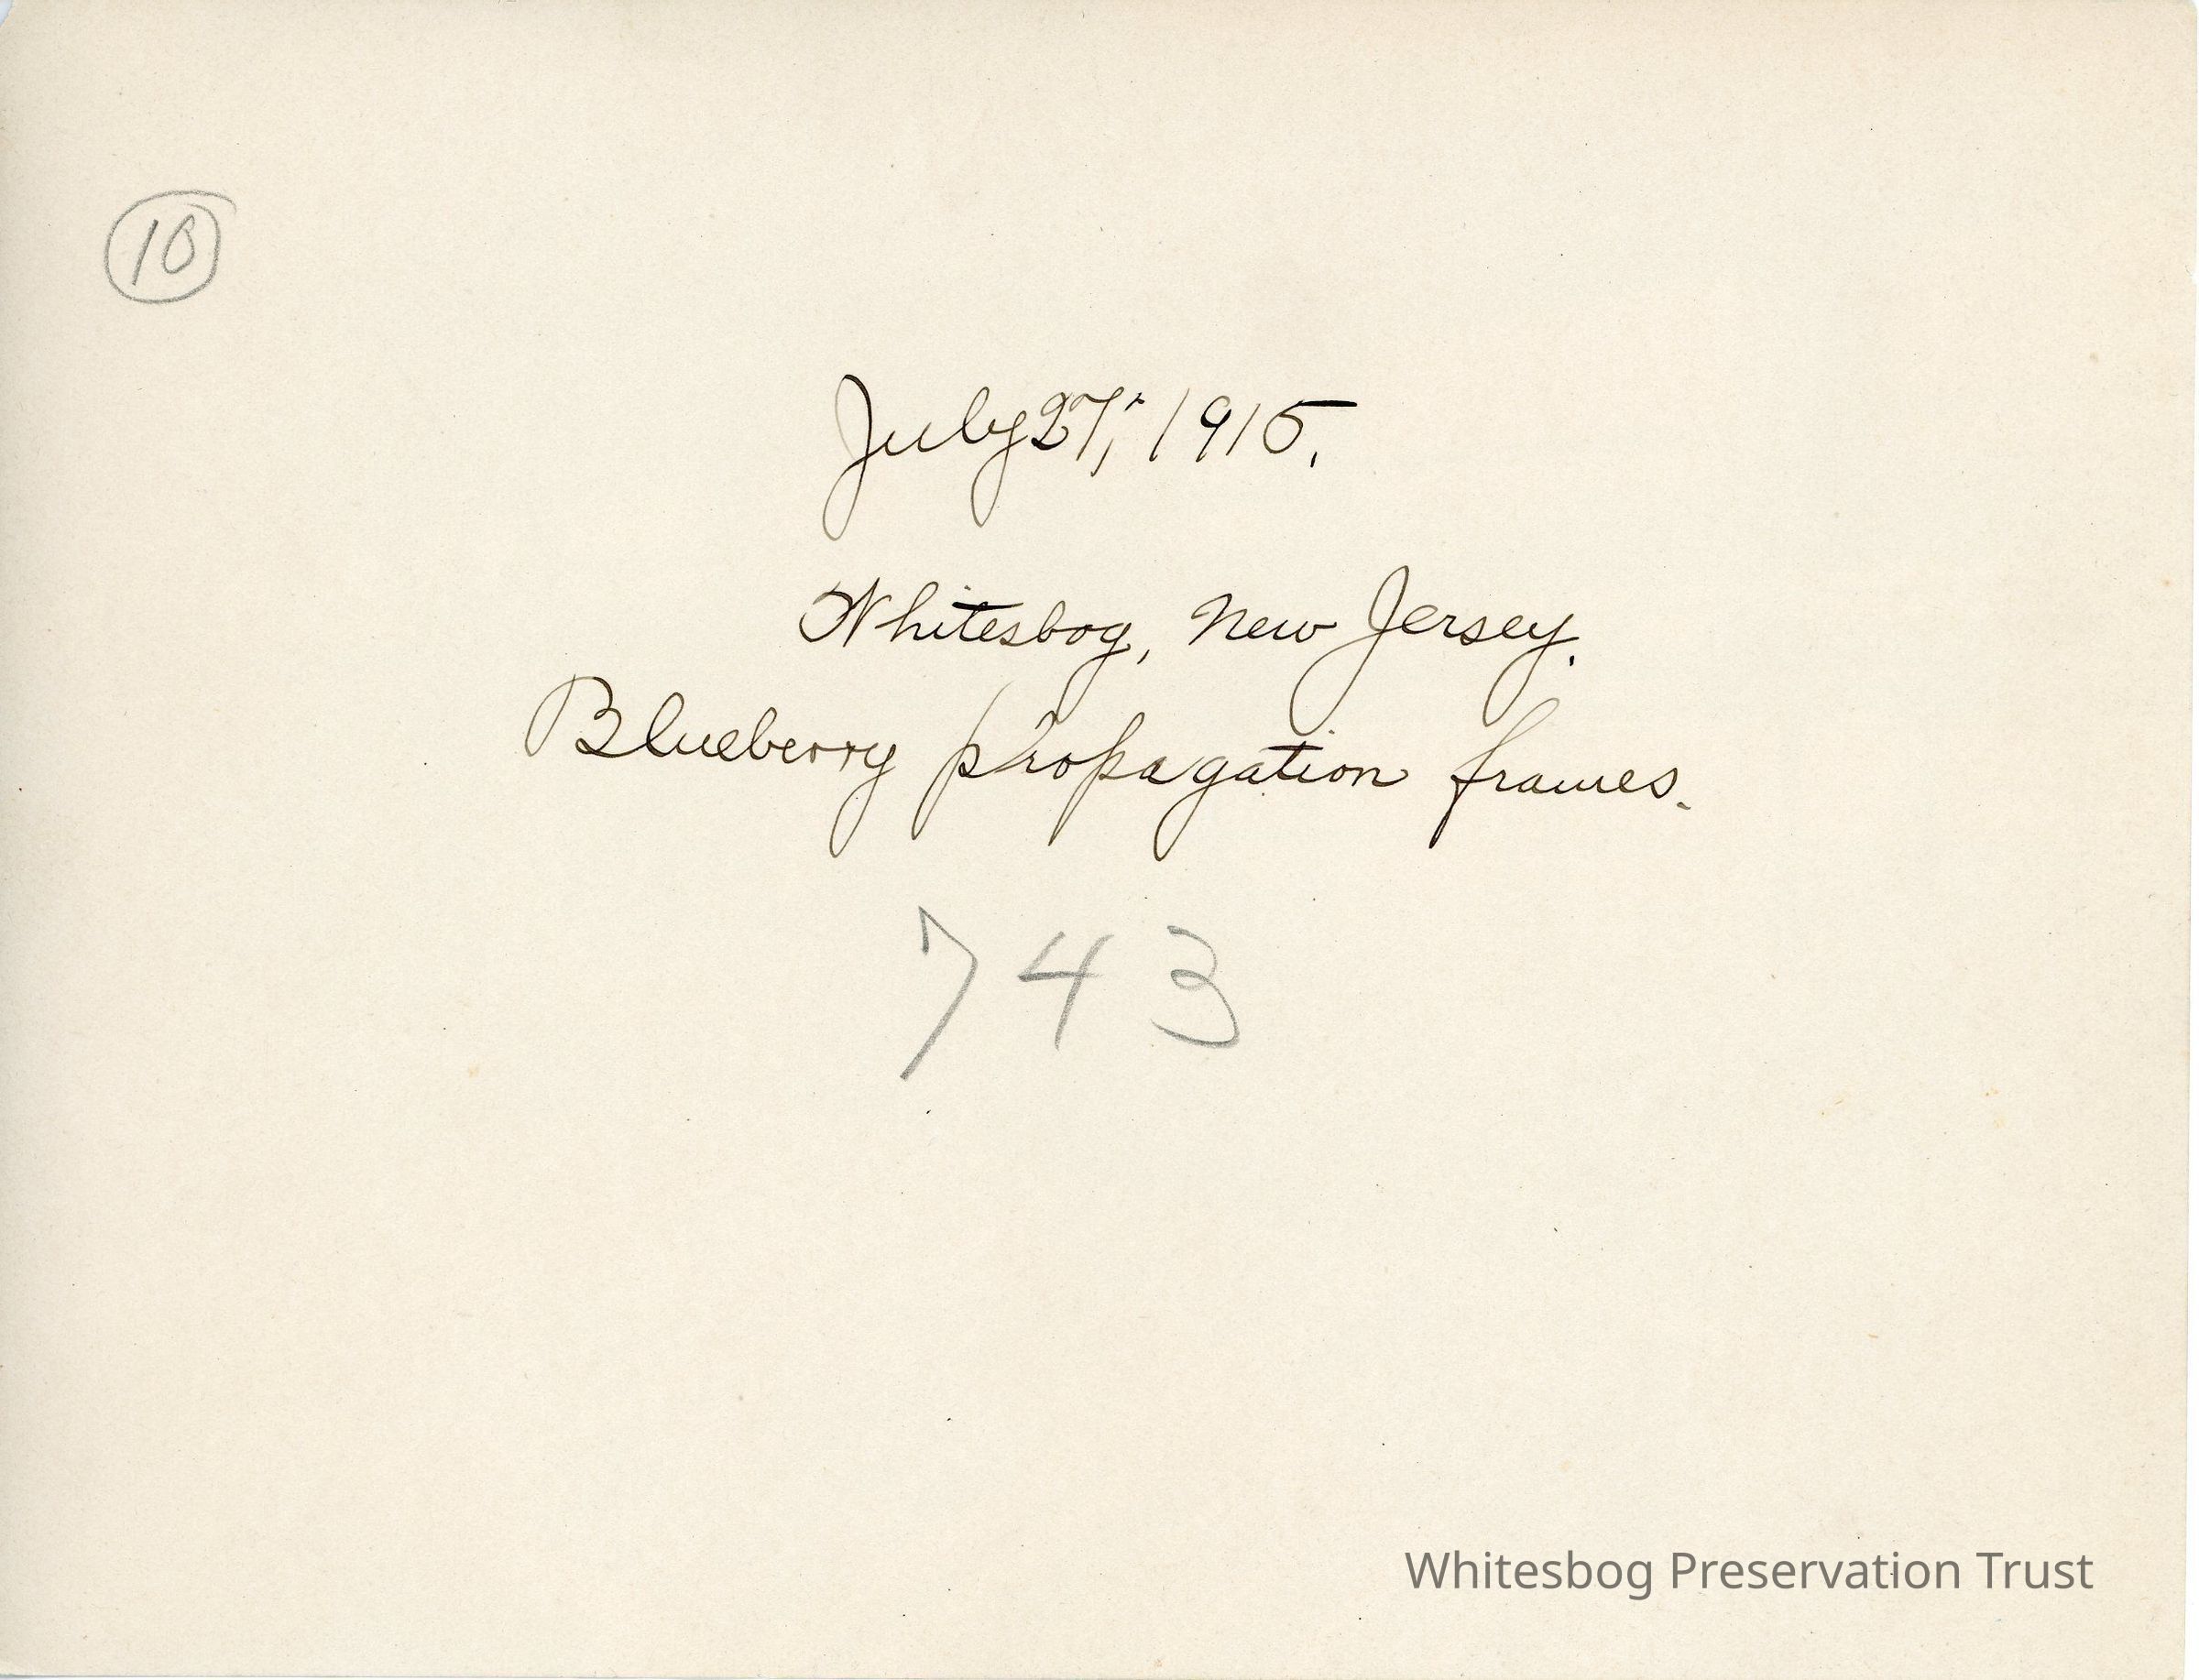 10
July 27, 1915.
Whitesbog, New Jersey.
Blueberry propagation frames.
743
Whitesbog Preservation Trust